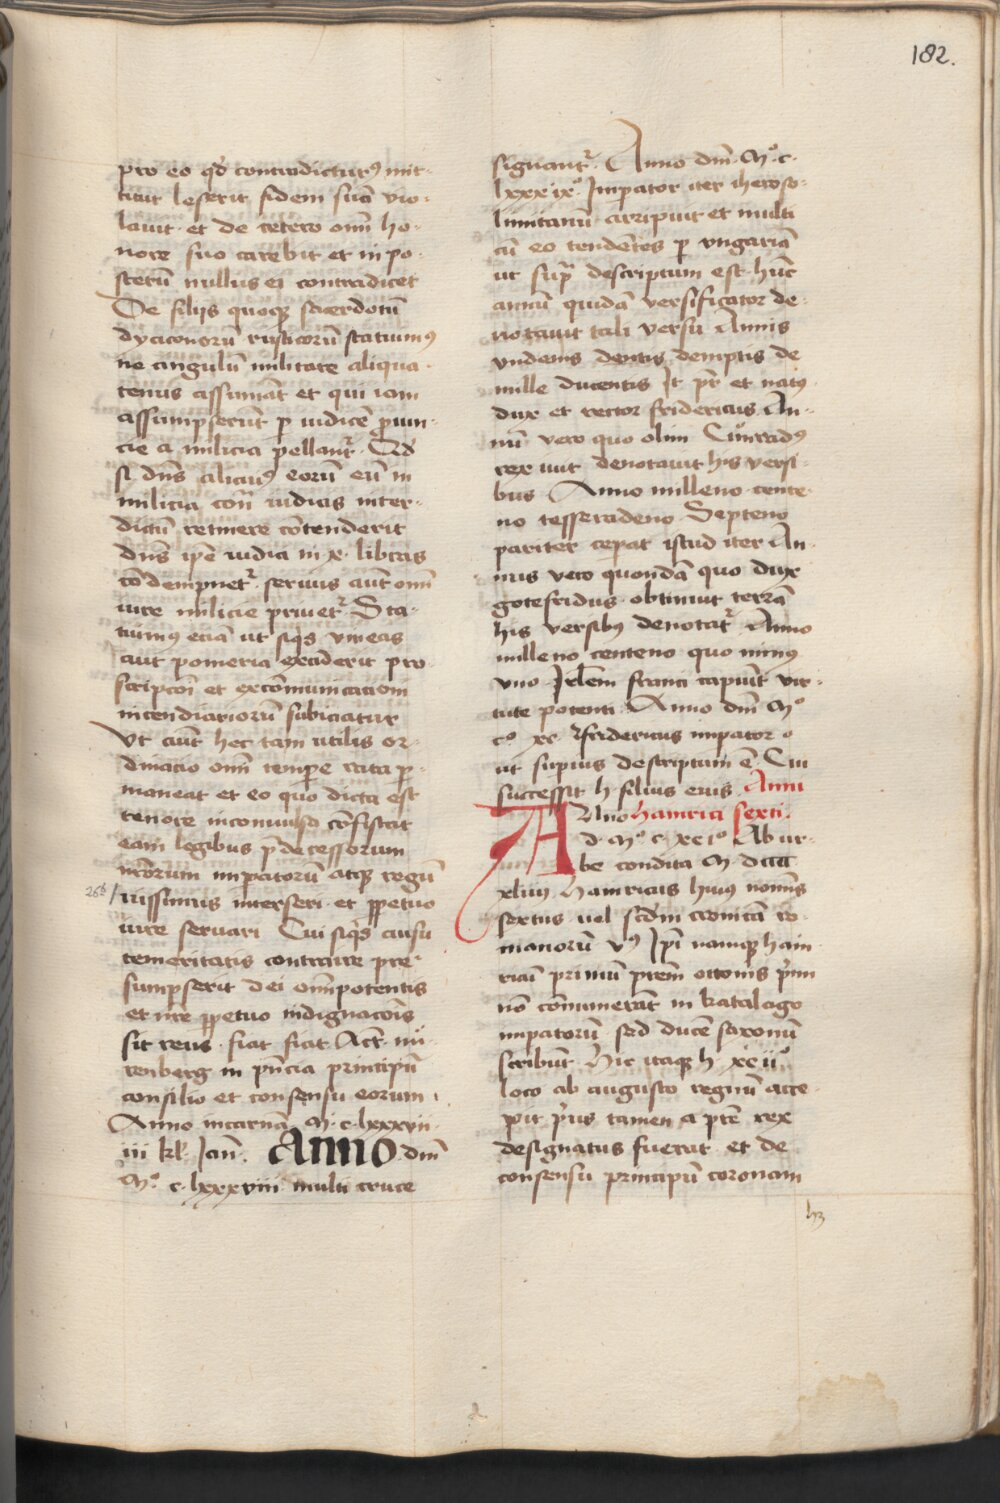 182.
pro eo qd contradicturꝰ mit-
titur leserit fidem suā vio-
lauit · et de cetero om̄i ho-
nore suo carebit et in po-
sterū nullus ei contradicet
De filijs quoqꝫ sacerdotū
dyaconorū rusticorū statuimꝰ
ne cingulū militare aliqua-
tenus assumāt et qui iam
assumpserūt p iudicē prouin-
cie a milicia pellant᷑ · Qd
si dn̄s alicuiꝰ eorū eū in
milicia cont᷑ iudicis inter-
dictū retinere cōtenderit
dn̄s ip̄e iudici in x · libras
cōdempnet᷑ · seruus aut om̄i
iure milicie priuet᷑ Sta-
tuimꝰ eciā ut siqͥs vineas
aut pomeria exciderit pro-
scripcōi et excōmunicacioni
incendiariorū subiciatur
Vt aūt hec tam utilis or-
dinacio om̄i tempore rata p-
maneat et eo quo dicta est
tenore inconuulsa cōsistat
eam legibus p̄decessorum
nr̄orum imp̄atorū atqꝫ regū
26b/ iussimus interseri · et ꝑpetuo
iure seruari Cui siqͥs ausu
temeritatis contraire pre-
sumpserit dei om̄ipotentis
et nr̄e ꝑpetuo indignacōis
sit reus · fiat fiat Act̄ · nů-
renberg in pn̄cia principū
consilio et consensu eorum ·
Anno incarnā · M · c · lxxxvii ·
iii kl · Ian̄ · Anno dn̄i
Mº · c · lxxxviii multi cruce
signant᷑ · Anno dn̄i · Mº · c ·
lxxxixº Imp̄ator iter iheroso-
limitanū arripuit et multi
cū eo tendētes p vngariā
ut sup̄ descriptum est · hūc
annū quidā versificator de-
notauit tali versu Annis
vndenis demptis de
mille ducentis It pr̄ et natꝰ
dux et rector fridericus An-
nū vero quo olim Cůnradꝰ
rex iuit denotauit his versi-
bus · Anno milleno cente-
no tesseradeno Septeno
pariter cepat istud iter An-
nus vero quondā quo dux
gotefridus obtinuit terrā
his versibꝰ denotat᷑ Anno
milleno centeno quo minꝰ
vno Irlem̄ franci capiūt vir-
tute potenti Anno dn̄i Mº
cº xc fridericus imp̄ator o
ut supius descriptum ē · Cui
successit h filius eius Anni
Anno hainrici sexti ·
d · Mº · c · xc iº Ab ur-
be condita M dcccc
xliiij hainricus huiꝰ nom̄is
sextus uel sc̄dm cronicā ro-
manorū vꝰ Ip̄i namqꝫ hain-
ricū primū pr̄em ottonis p̄mi
nō cōnumerāt in katalago
imp̄atorū sed ducē saxonū
scribūt · Hic itaqꝫ h xc iiº
loco ab augusto regnū acce-
pit p̄us tamen a pr̄e rex
designatus fuerat · et de
consensu principū coronam
hꝫ